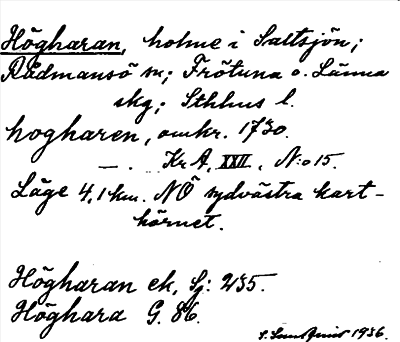 Högharan, holme i Saltsjön;
Rådmansö sn; Frötuna o. Länna
skg; Sthlms l.
hogharen, omkr. 1730.
— . Kr A, XXII, N:o 15.
Läge 4,1 km. NÖ sydvästra kart-
hörnet.
Högharan ek, Sj: 235.
Höghara G. 86.
1936.